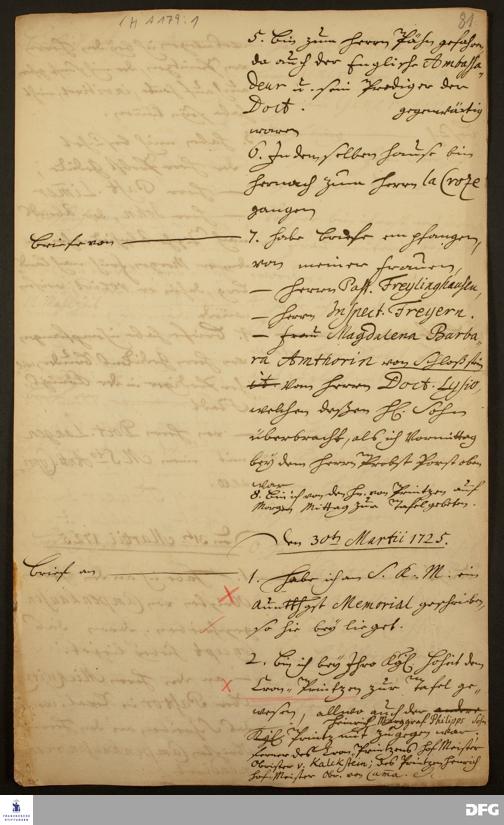 H A 179:1
81
5. bin zum Herrn Pähn gefahren,
da auch der Englische Ambassa-
deur u. sein Prediger der
Doct. gegenwärtig
waren
6. In demselben Hause bin
hernach zum Herrn la Croze
gangen
Briefe von
7. habe briefe empfangen,
von meiner Frauen,
– Herrn Past. Freylinghausen,
– Herrn Inspect. Freyern.
– Frau Magdalena Barba-
ra Amthorin von Schloß
vom Herrn Doct. Lysio,
welchen deßen H. Sohn
überbracht, als ich Vormittag
bey dem Herrn Probst Porst oben
war
8. bin ich von dem Hn. von Printzen auf
Morgen Mittag zur Tafel gebeten.
Den 30th Martii 1725.
Brief an
1. Habe ich an S. K. M. ein
Memorial geschrieben,
so hie bey lieget.
2. bin ich bey Ihro Kgl. Hoheit dem
Cron-Printzen zur Tafel ge-
wesen, allwo auch der andere
Heinrich Marggraf Philipps Sohn
Kgl. Printz mit zugegen war;
ferner des Cron-Printzens Hof-Meister
Obrister v. Kalckstein; des Printzen Henrich
Hof-Meister Obr. von Cama.
FRANCKESCHE
STIFTUNGEN
DFG